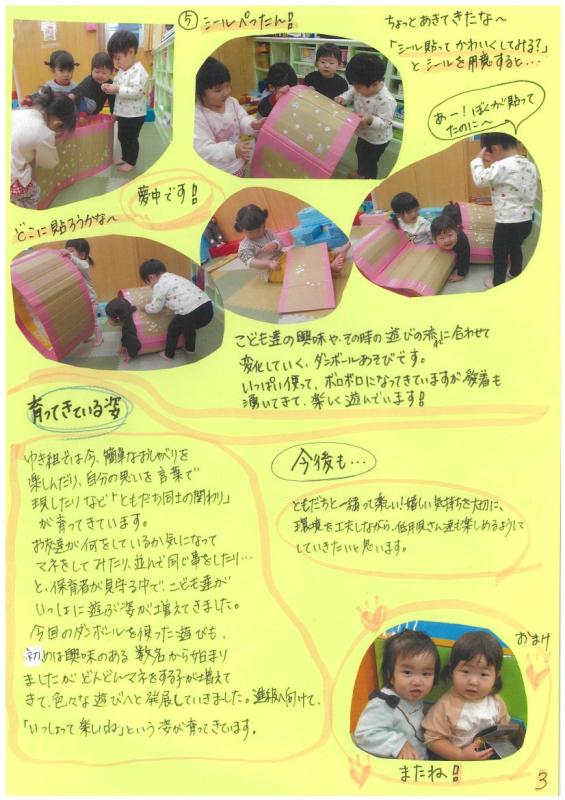 ⑤ シールぺったん!!
ちょっとあきてきたな〜
「シール貼ってかわいくしてみる?」
とシールを用意すると…
あー!ぼくが貼って
たのに〜
夢中です!!
どこに貼ろうかな〜
こども達の興味や、その時の遊びの流れに合わせて
変化していく、ダンボールあそびです。
いっぱい使って、ボロボロになってきていますが愛着も
湧いてきて、楽しく遊んでいます!!
育ってきている姿
ゆき組では今、簡単なおしゃべりを
楽しんだり、自分の思いを言葉で
現したりなど「ともだち同士の関わり」
が育ってきています。
お友達が何をしているか気になって
マネをしてみたり、並んで同じ事をしたり…
と、保育者が見守る中で、こども達が
いっしょに遊ぶ姿が増えてきました。
今回のダンボールを使った遊びも、
初めは興味のある数名から始まり
ましたがどんどんマネをする子が増えて
きて、色々な遊びへと発展していきました。進級へ向けて、
「いっしょって楽しいね」という姿が育ってきています。
今後も…
ともだちと一緒って楽しい!嬉しい気持ちを大切に、
環境を工夫しながら、低月児さん達も楽しめるように
していきたいと思います。
おまけ
またね!!
3